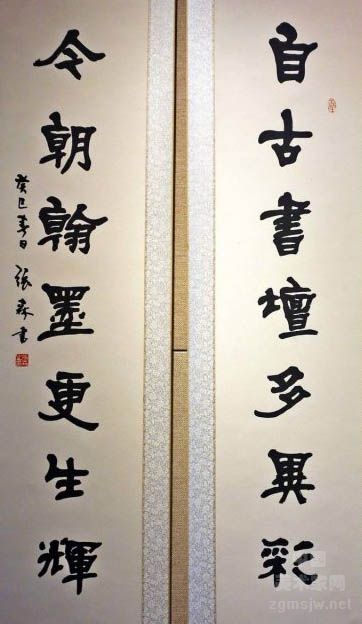 自古書壇多異彩
今朝翰墨更生輝
癸巳春日 張森書
美术家网
zgmsjw.net